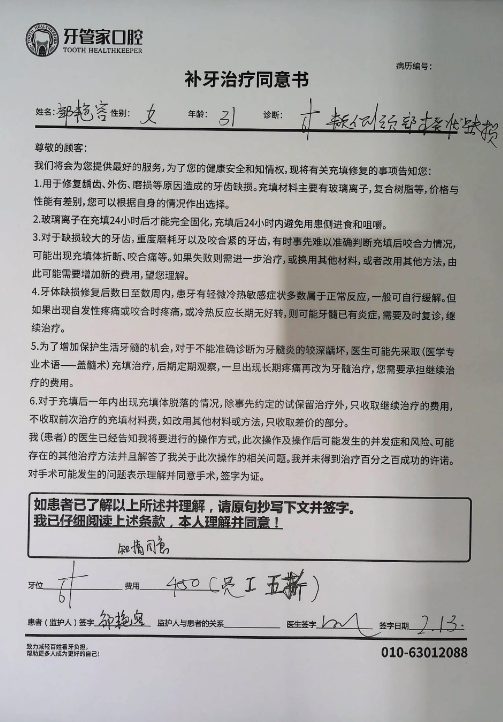 牙管家口腔
TOOTH HEALTHKEEPER
病历编号：
补牙治疗同意书
姓名：邹艳容 性别：女 年龄：31 诊断：6 颊侧颈部楔状缺损
尊敬的顾客：
我们将会为您提供最好的服务，为了您的健康安全和知情权，现将有关充填修复的事项告知您：
1.用于修复龋齿、外伤、磨损等原因造成的牙齿缺损。充填材料主要有玻璃离子，复合树脂等，价格与
性能有差别，您可以根据自身的情况作出选择。
2.玻璃离子在充填24小时后才能完全固化，充填后24小时内避免用患侧进食和咀嚼。
3.对于缺损较大的牙齿，重度磨耗牙以及咬合紧的牙齿，有时事先难以准确判断充填后咬合力情况，
可能出现充填体折断、咬合痛等。如果失败则需进一步治疗，或换用其他材料，或者改用其他方法，由
此可能需要增加新的费用，望您理解。
4.牙体缺损修复后数日至数周内，患牙有轻微冷热敏感症状多数属于正常反应，一般可自行缓解。但
如果出现自发性疼痛或咬合时疼痛，或冷热反应长期无好转，则可能牙髓已有炎症，需要及时复诊，继
续治疗。
5.为了增加保护生活牙髓的机会，对于不能准确诊断为牙髓炎的较深龋坏，医生可能先采取（医学专
业术语——盖髓术）充填治疗，后期定期观察，一旦出现长期疼痛再改为牙髓治疗，您需要承担继续治
疗的费用。
6.对于充填后一年内出现充填体脱落的情况，除事先约定的试保留治疗外，只收取继续治疗的费用，
不收取前次治疗的充填材料费，如改用其他材料或方法，只收取差价的部分。
我（患者）的医生已经告知我将要进行的操作方式，此次操作及操作后可能发生的并发症和风险、可能
存在的其他治疗方法并且解答了我关于此次操作的相关问题。我并未得到治疗百分之百成功的许诺。
对手术可能发生的问题表示理解并同意手术，签字为证。
如患者已了解以上所述并理解，请原句抄写下文并签字。
我已仔细阅读上述条款，本人理解并同意！
知情同意
牙位 6 费用 450（员工五折）
患者（监护人）签字 邹艳容 监护人与患者的关系 医生签字 签字日期 2.13.
致力减轻百姓看牙负担，
帮助更多人成为更好的自己！
010-63012088